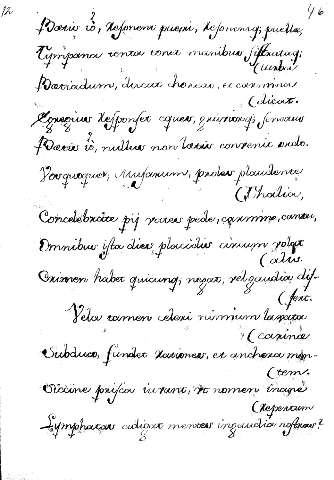 12 46
Bactis ió, resonent pueri, resonentq; puellæ,
Tympana tenta tonet manibus
(turba
Bacchadum, ducat choreas, et carmina
(dicat.
Egregius respondet eques,
Bactis ió, nullus non latis convenit ordo.
Vos quoque, Musarum, proles plaudente
(Thalia,
Concelebrate pij vates pede, carmine, cantu,
Omnibus ista dies placidis circum volat
(alis.
Crimen habet quicunq; negat, vel gaudia dif-
(fert.
Vela tamen celeri nimium laxata
(carinæ
Subduct, fundet rationes, et anchora men-
(tem.
Siccine prisca iuvant, et nomen inane
(repertum
Lymphatas adiget mentes in gaudia nostras?